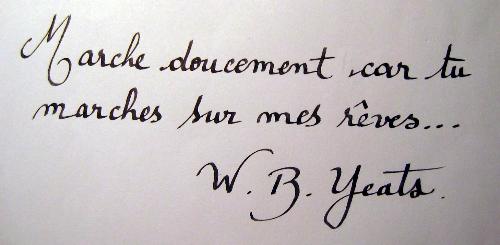 Marche doucement, car tu
marches sur mes rêves...
W. B. Yeats.